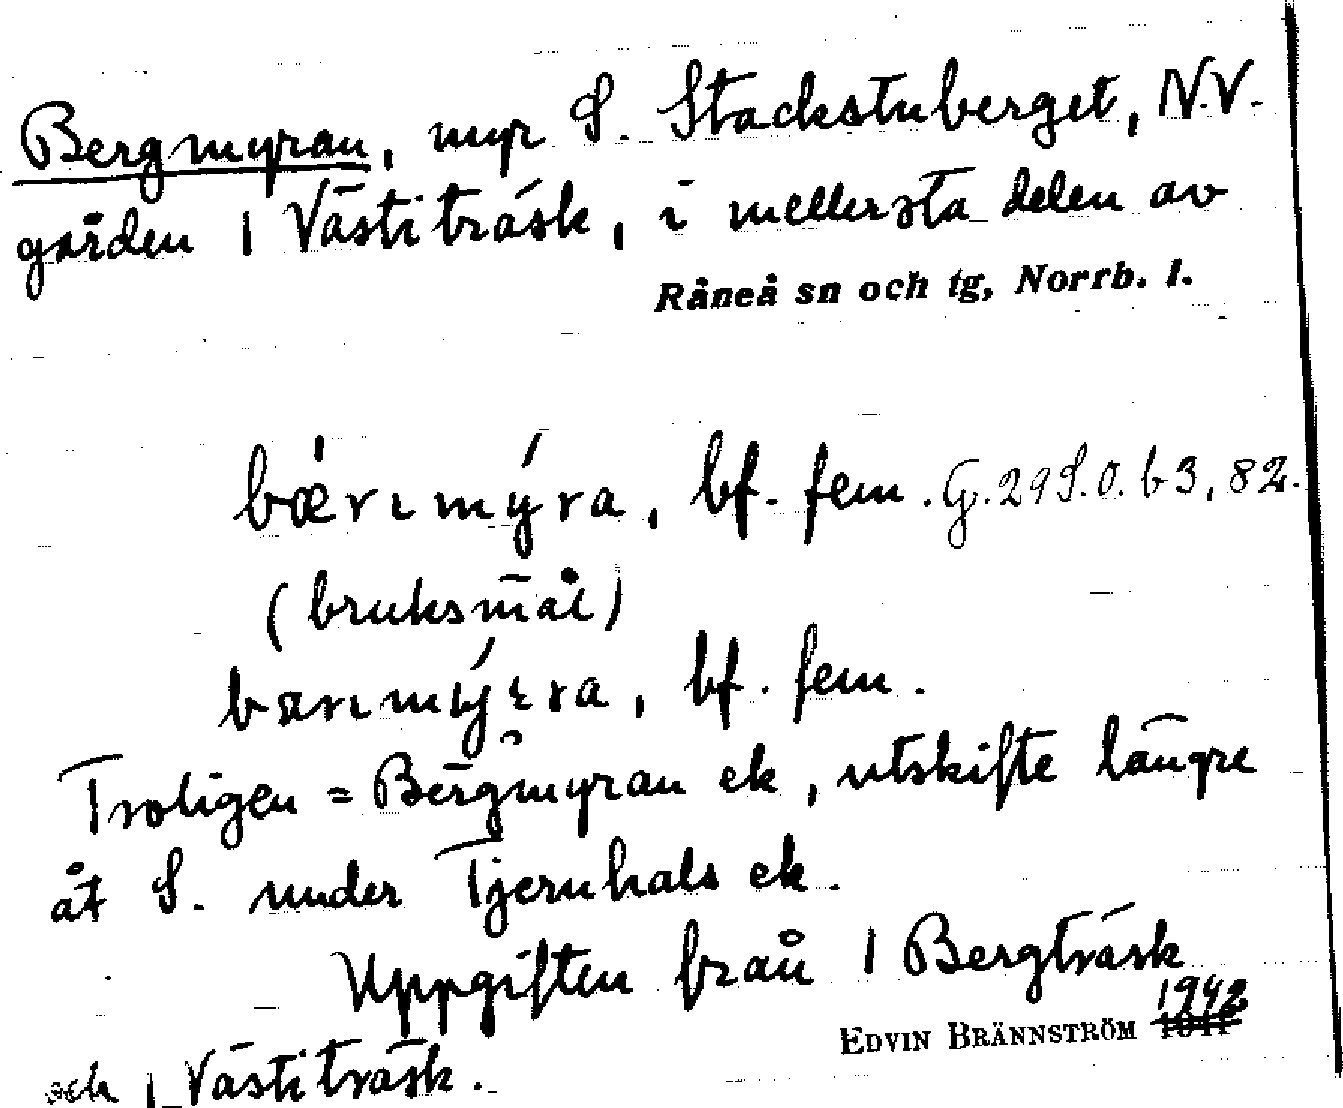 Bergmyran, myr S. Stackstuberget, N.V.
gården 1 Västiträsk, i mellersta delen av
Råneå sn och tg, Norrb. l.
bǽrımýra, bf. fem. G. 29 S. O. b 3, 82.
(bruksmål)
bærımýrra, bf. fem.
Troligen = Bergmyran ek, utskifte längre
åt S. under Tjernhals ek.
Uppgiften från 1 Bergträsk
EDVIN BRÄNNSTRÖM 1942
och 1 Västiträsk.